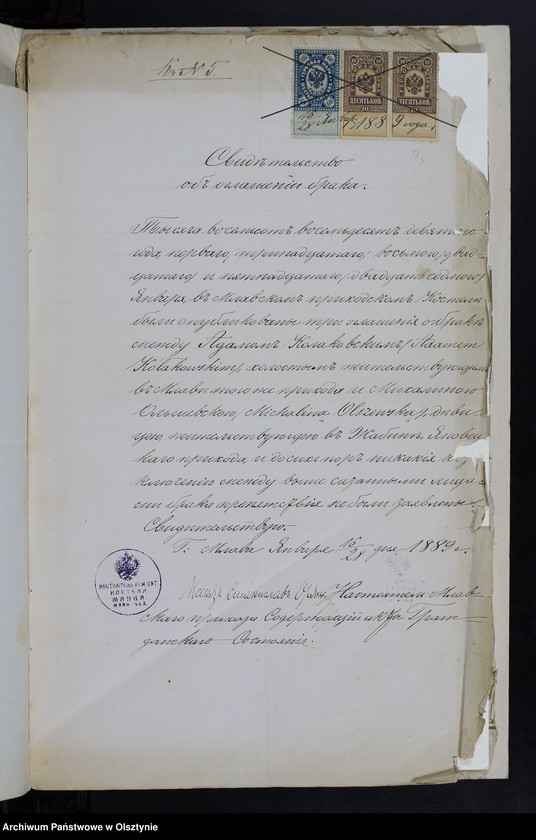 К. № 5.
ДЕСЯТЬ КОП.
10
ДЕСЯТЬ КОП.
10
16/28 Янвр. 1889 года.
3
Свидѣтельство
объ оглашеніи брака.
Тысяча восемьсотъ восемьдесятъ девятого
года, перваго /тринадцатаго/ восьмого /двад-
цатаго/ и пятнадцатаго /двадцать седмого/
Января въ Млавскомъ приходскомъ Костелѣ
были опубликованы три оглашенія о бракѣ
между Адамомъ Колаковскимъ /Adamem
Kołakowskim/ холостымъ жительствующимъ
въ Млавѣ того же прихода и Михалиною
Ольшевскою /Michaliną Olszewską/, дѣви-
цею жительствующею въ Жабинѣ, Яновс-
каго прихода, и до сихъ поръ никакія къ за-
ключенію между выше сказанными лица-
ми брака препятствіе не были заявлены. –
Свидѣтельствую.
Г. Млава Января 16/28 дня 1889 г.
КОСТЕЛА
МЛАВА
Станиславъ Настоятель Млав-
скаго прихода Содержащій акты Граж-
данскаго Состоянія.
Archiwum Państwowe w Olsztynie